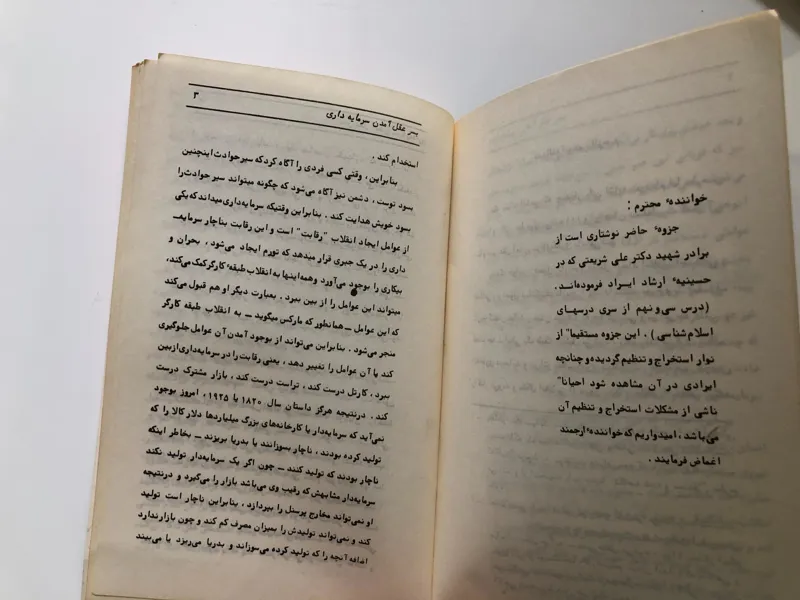 خوانندهٔ محترم :
جزوهٔ حاضر نوشتاری است از
برادر شهید دکتر علی شریعتی که در
حسینیهٔ ارشاد ایراد فرموده‌انـد.
(درس سی‌و نهم از سری درسهـای
اسلام‌شناسی) . این جزوه مستقیما" از
نوار استخراج و تنظیم گردیده و چنانچه
ایرادی در آن مشاهده شود احیانا"
ناشی از مشکلات استخراج و تنظیم آن
می‌باشد ، امیدواریم که خوانندهٔ ارجمند
اغماض فرمایند .
بسر عقل آمدن سرمایه داری
۳
استخدام کند .
بنابراین ، وقتی کسی فردی را آگاه کرد که سیر حوادث اینچنین
بسود توست ، دشمن نیز آگاه می‌شود که چگونه میتواند سیر حوادث را
بسود خویش هدایت کند . بنابراین وقتیکه سرمایه‌داری میداند که یکی
از عوامل ایجاد انقلاب "رقابت" است و این رقابت بناچار سرمایه‌ـ
داری را در یک جبری قرار میدهد که تورم ایجاد می‌شود ، بحران و
بیکاری را بوجود می‌آورد و همه اینها به انقلاب طبقهٔ کارگر کمک می‌کند،
میتواند این عوامل را از بین ببرد . بعبارت دیگر او هم قبول می‌کند
که این عوامل ـ همانطور که مارکس میگوید ـ به انقلاب طبقه کارگر
منجر می‌شود . بنابراین می‌تواند از بوجود آمدن آن عوامل جلوگیری
کند یا آن عوامل را تغییر دهد ، یعنی رقابت را در سرمایه‌داری از بین
ببرد ، کارتل درست کند ، تراست درست کند ، بازار مشترک درست
کند . درنتیجه هرگز داستان سال ۱۸۲۰ یا ۱۹۲۵، امروز بوجود
نمی‌آید که سرمایه‌دار با کارخانه‌های بزرگ میلیاردها دلار کالا را که
تولید کرده بودند ، ناچار بسوزانند یا بدریا بریزند ـ بخاطر اینکه
ناچار بودند که تولید کنند ـ چون اگر یک سرمایه‌دار تولید نکند
سرمایه‌دار مشابهش که رقیب وی می‌باشد بازار را می‌گیرد و درنتیجه
او نمی‌تواند مخارج پرسنل را بپردازد ، بنابراین ناچار است تولید
کند و نمی‌تواند تولیدش را بمیزان مصرف کم کند و چون بازار ندارد
اضافه آنچه را که تولید کرده می‌سوزاند و بدریا می‌ریزد یا می‌بیند